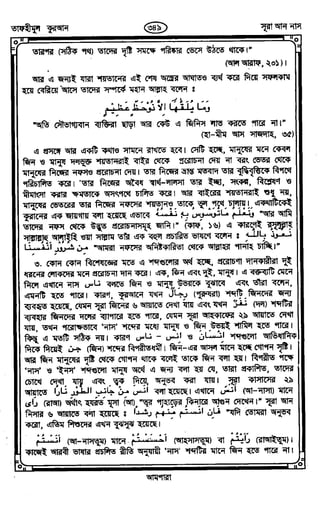 তাফহীমুল কুরআন ৩৪৯ সূরা আন নাস
তারপর (সঠিক পথ) তাদের দৃষ্টি সমক্ষে পরিষ্কার ভেসে উঠতে থাকে।"
(আল আরাফ, ২০১)।
আর এ জন্যই যারা শয়তানের এই শেষ অস্ত্রের আঘাতও ব্যর্থ করে দিয়ে সফলকাম
হয়ে বেরিয়ে আসে তাদের সম্পর্কে মহান আল্লাহ বলেন :
وَمَا يُلَقّٰهَا اِلَّا ذُوْ حَظٍّ عَظِيْمٍ
"অতি সৌভাগ্যবান ব্যক্তিরা ছাড়া আর কেউ এ জিনিস লাভ করতে পারে না।"
(হা-মীম আস সাজদাহ, ৩৫)
এ প্রসঙ্গে আর একটি কথাও সামনে রাখতে হবে। সেটি হচ্ছে, মানুষের মনে কেবল
জিন ও মানুষ দলভুক্ত শয়তানরাই বাইর থেকে প্ররোচনা দেয় না বরং ভেতর থেকে
মানুষের নিজের নফসও প্ররোচনা দেয়। তার নিজের ভ্রান্ত মতবাদ তার বুদ্ধিবৃত্তিকে বিপথে
পরিচালিত করে। তার নিজের অবৈধ স্বার্থ-লালসা তার ইচ্ছা, সংকল্প, বিশ্লেষণ ও
মীমাংসা করার ক্ষমতাকে অসৎপথে চালিত করে। আর বাইরের শয়তানরাই শুধু নয়,
মানুষের ভেতরের তার নিজের নফসের শয়তানও তাকে ভুল পথে চালায়। একথাটিকেই
কুরআনের এক জায়গায় বলা হয়েছে এভাবে وَنَعْلَمُ مَا تُوَسْوِسُ بِهٖ نَفْسُهٗ "আর আমি
তাদের নফস থেকে উদ্ভূত প্ররোচনাসমূহ জানি।" (কাফ, ১৬) এ কারণেই রসূলুল্লাহ
সাল্লাল্লাহু আলাইহি ওয়া সাল্লাম তাঁর এক বহুল প্রচারিত ভাষণে বলেন : نَعُوْذُ بِاللّٰهِ
مِنْ شُرُوْرِ اَنْفُسِنَا "আমরা নফসের অনিষ্টকারিতা থেকে আল্লাহর পানাহ চাচ্ছি।"
৩. কোন কোন বিশেষজ্ঞের মতে এ শব্দগুলোর অর্থ হচ্ছে, প্ররোচনা দানকারীরা দুই
ধরনের লোকদের মনে প্ররোচনা দান করে। এক, জিন এবং দুই, মানুষ। এ বক্তব্যটি মেনে
নিলে এখানে নাস ناس বলতে জিন ও মানুষ উভয়কে বুঝাবে এবং তারা বলেন,
এমনটি হতে পারে। কারণ, কুরআনে যখন رجال (পুরুষরা) শব্দটি জিনদের জন্য
ব্যবহৃত হয়েছে, যেমন সূরা জিনের ৬ আয়াতে দেখা যায় এবং যখন نفر (দল) শব্দটির
ব্যবহার জিনদের দলের ব্যাপারে হতে পারে, যেমন সূরা আহকাফের ২৯ আয়াতে দেখা
যায়, তখন পরোক্ষভাবে 'নাস' শব্দের মধ্যে মানুষ ও জিন উভয়ই শামিল হতে পারে।
কিন্তু এ মতটি সঠিক নয়। কারণ ناس - انس ও انسان শব্দগুলো আভিধানিক
দিক দিয়েই جن (জিন) শব্দের বিপরীতধর্মী। জিন-এর আসল মানে হচ্ছে গোপন সৃষ্টি।
আর জিন মানুষের দৃষ্টি থেকে গোপন থাকে বলেই তাকে জিন বলা হয়। বিপরীত পক্ষে
'নাস' ও 'ইনস' শব্দগুলো মানুষ অর্থে এ জন্য বলা হয় যে, তারা প্রকাশিত, তাদের
চোখে দেখা যায় এবং ত্বক দিয়ে, অনুভব করা যায়। সূরা কাসাসের ২৯
আয়াতে اٰنَسَ مِنْ جَانِبِ الطُّوْرِ نَارًا বলা হয়েছে। এখানে اٰنَسَ (আ-নাসা) মানে
رأى (রাআ) অর্থাৎ হযরত মূসা (আ) "তূর পাহাড়ের কিনারে আগুন দেখলেন।" সূরা আন
নিসার ৬ আয়াতে বলা হয়েছে : فَاِنْ اٰنَسْتُمْ مِّنْهُمْ رُشْدًا "যদি তোমরা অনুভব
করো, এতিম শিশুদের এখন বুঝসুঝ হয়েছে।
اٰنَسْتُمْ (আ-নাসতুম) মানে اَحْسَسْتُمْ (আহসাসতুম) বা رَاَيْتُمْ (রাআইতুম)।
কাজেই আরবী ভাষার প্রচলিত রীতি অনুযায়ী 'নাস' শব্দটির মানে জিন হতে পারে না।
আমপারা